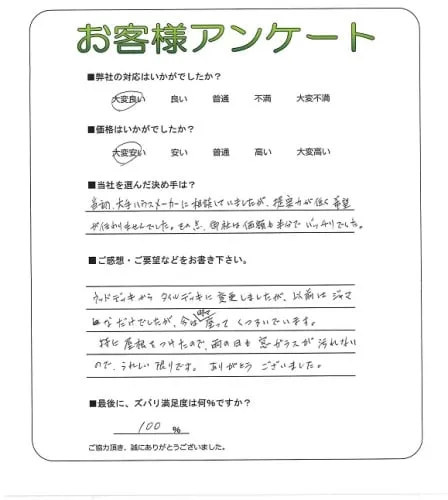 お客様アンケート
■弊社の対応はいかがでしたか？
大変良い 良い 普通 不満 大変不満
■価格はいかがでしたか？
大変安い 安い 普通 高い 大変高い
■当社を選んだ決め手は？
当初、大手ハウスメーカーに相談していましたが、提案力が低く希望
が伝わりませんでした。その点、御社は価額も半分でバッチリでした。
■ご感想・ご要望などをお書き下さい。
ウッドデッキからタイルデッキに変更しましたが、以前はジャマ
なだけでしたが、今は座ってくつろいでいます。
特に屋根をつけたので、雨の日も窓ガラスが汚れない
ので、うれしい限りです。ありがとうございました。
■最後に、ズバリ満足度は何%ですか？
100 %
ご協力頂き、誠にありがとうございました。